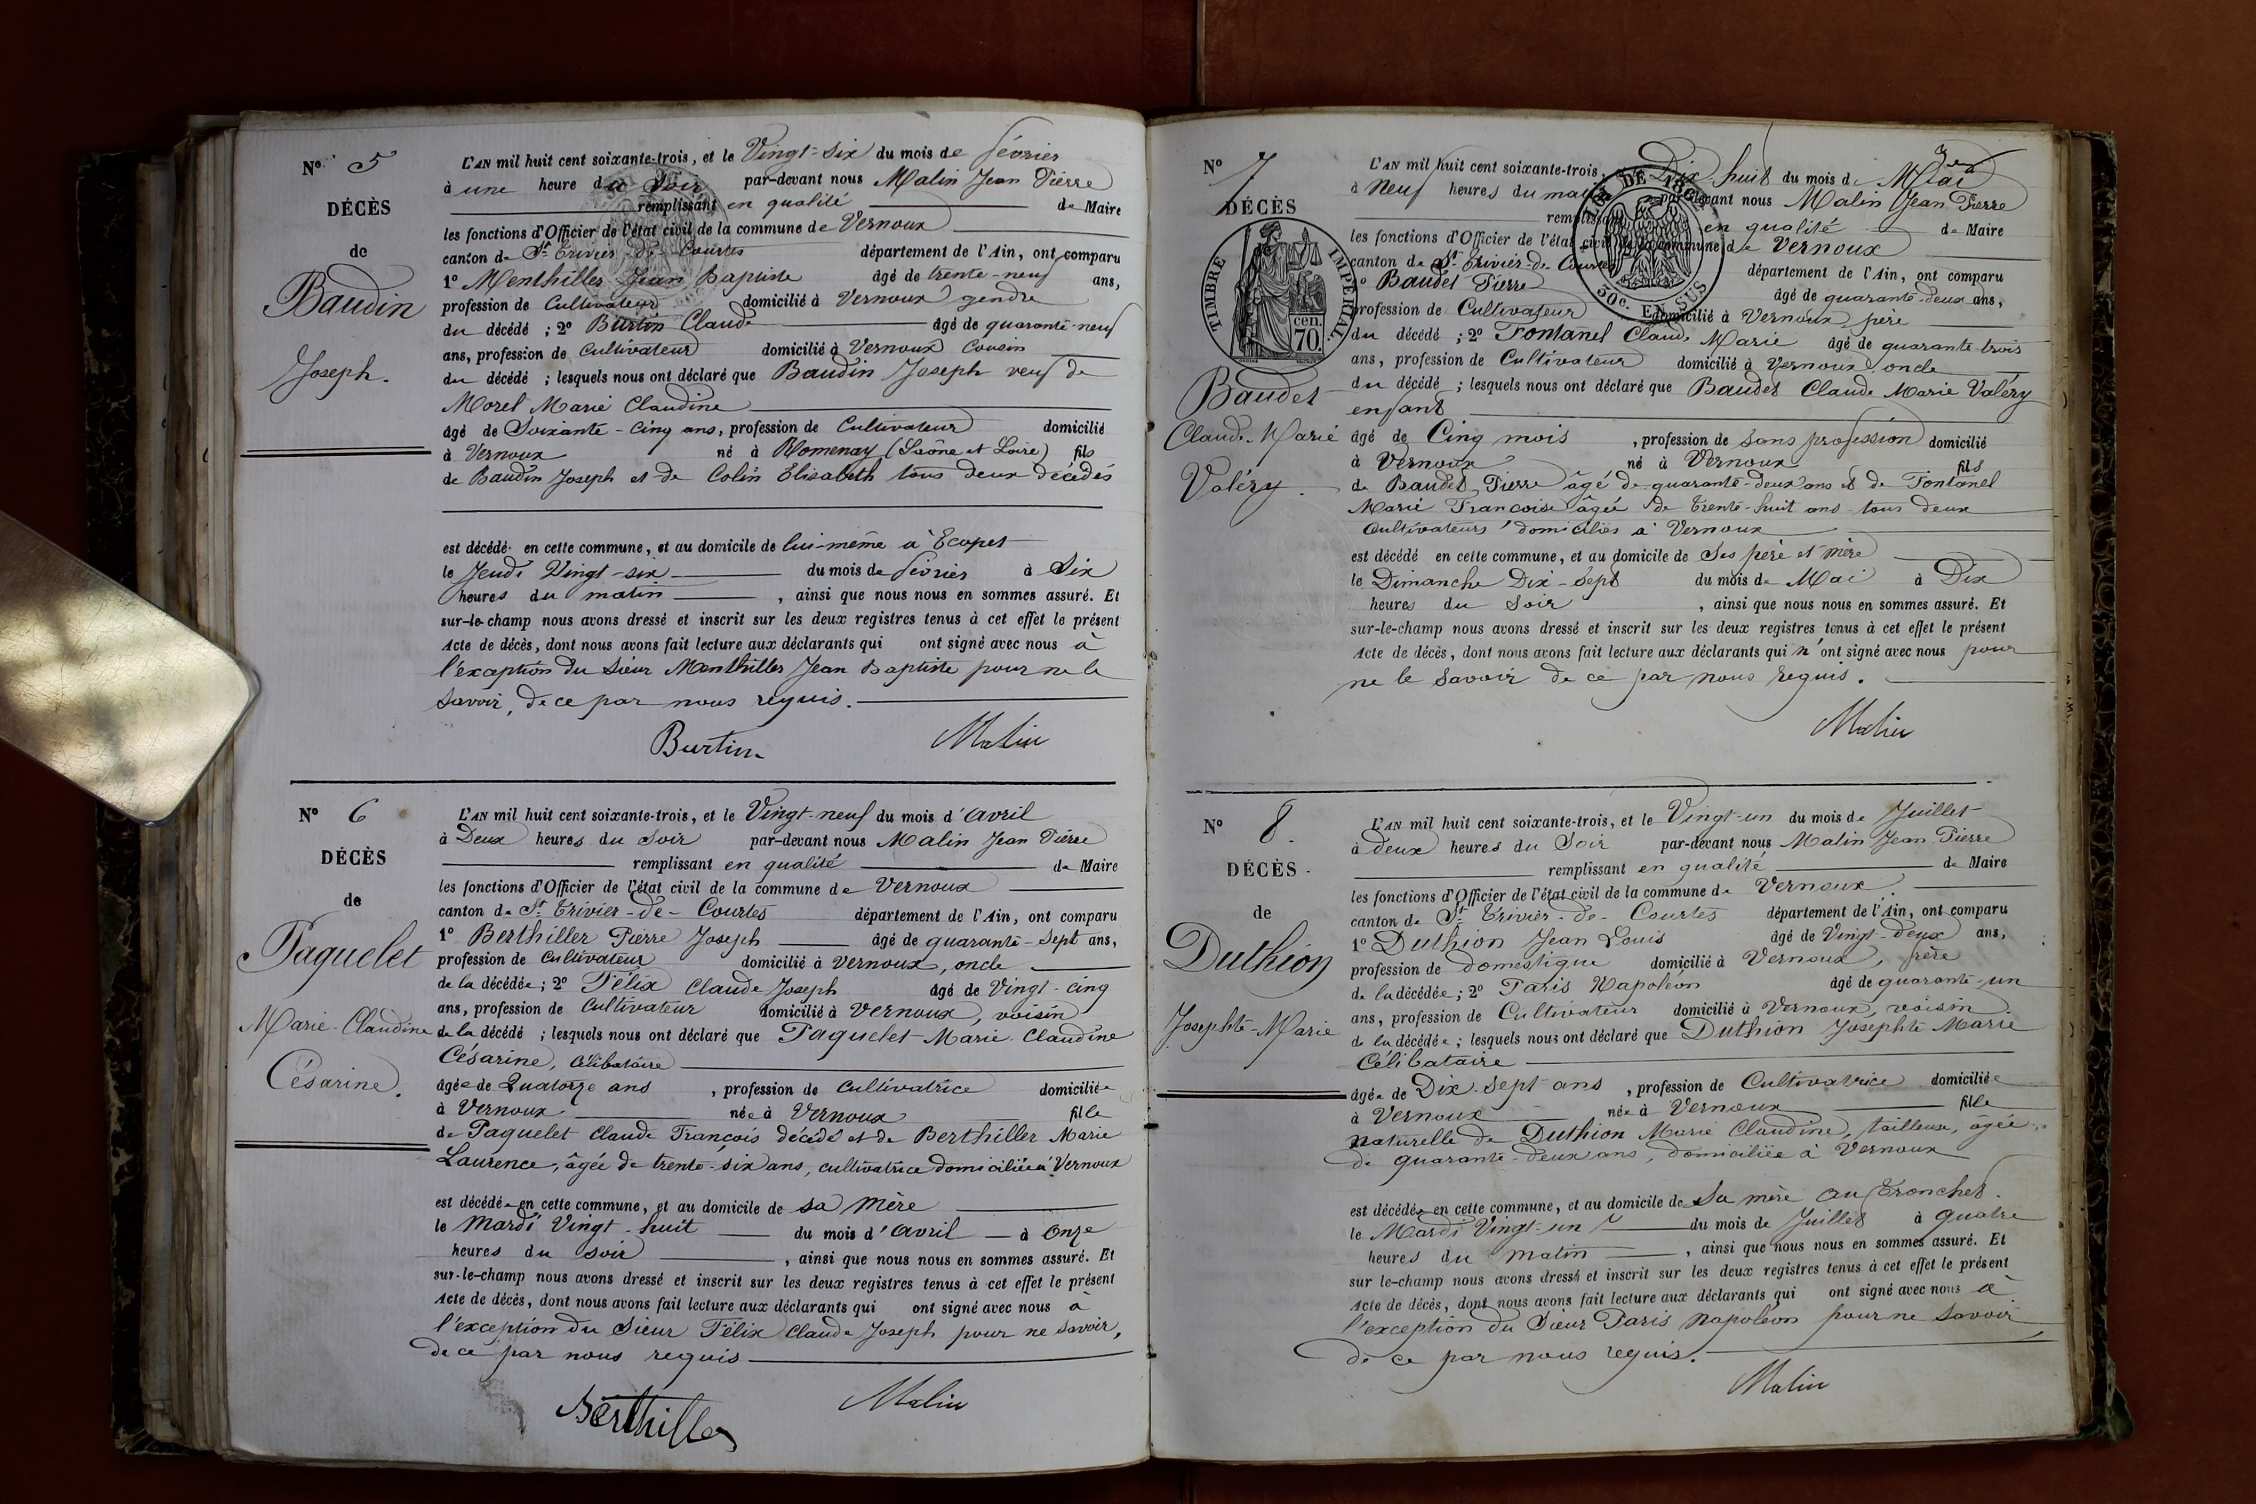 Nº 5
DÉCÈS
de
Baudin
Joseph.
L'AN mil huit cent soixante-trois, et le Vingt-six du mois de février
à une heure du Soir par-devant nous Malin Jean Pierre
remplissant en qualité de Maire
les fonctions d'Officier de l'état civil de la commune de Vernoux
canton de St Trivier-de-Courtes département de l'Ain, ont comparu
1º Menthiller Jean Baptiste âgé de trente-neuf ans,
profession de Cultivateur domicilié à Vernoux gendre
du décédé ; 2º Burtin Claude âgé de quarante-neuf
ans, profession de Cultivateur domicilié à Vernoux Cousin
du décédé ; lesquels nous ont déclaré que Baudin Joseph veuf de
Morel Marie Claudine
âgé de Soixante-Cinq ans, profession de Cultivateur domicilié
à Vernoux né à Romenay (Saône et Loire) fils
de Baudin Joseph et de Colin Elisabeth tous deux décédés
est décédé en cette commune, et au domicile de lui-même à Ecopet
le Jeudi Vingt-six du mois de février à Six
heures du matin , ainsi que nous nous en sommes assuré. Et
sur-le-champ nous avons dressé et inscrit sur les deux registres tenus à cet effet le présent
Acte de décès, dont nous avons fait lecture aux déclarants qui ont signé avec nous à
l'exception du Sieur Menthiller Jean Baptiste pour ne le
savoir, de ce par nous requis.
Burtin Malin
Nº 6
DÉCÈS
de
Paquelet
Marie-Claudine
Césarine.
L'AN mil huit cent soixante-trois, et le Vingt-neuf du mois d'avril
à Deux heures du Soir par-devant nous Malin Jean Pierre
remplissant en qualité de Maire
les fonctions d'Officier de l'état civil de la commune de Vernoux
canton de St Trivier-de-Courtes département de l'Ain, ont comparu
1º Berthiller Pierre Joseph âgé de quarante-sept ans,
profession de Cultivateur domicilié à Vernoux, oncle
de la décédée ; 2º Félix Claude Joseph âgé de Vingt-cinq
ans, profession de Cultivateur domicilié à Vernoux, voisin
de la décédé ; lesquels nous ont déclaré que Paquelet Marie Claudine
Césarine, Célibataire
âgée de Quatorze ans , profession de Cultivatrice domiciliée
à Vernoux née à Vernoux fille
de Paquelet Claude François décédé et de Berthiller Marie
Laurence, âgée de trente-six ans, cultivatrice domiciliée à Vernoux
est décédée en cette commune, et au domicile de sa Mère
le Mardi Vingt-huit du mois d'avril à Onze
heures du soir , ainsi que nous nous en sommes assuré. Et
sur-le-champ nous avons dressé et inscrit sur les deux registres tenus à cet effet le présent
Acte de décès, dont nous avons fait lecture aux déclarants qui ont signé avec nous à
l'exception du Sieur Félix Claude Joseph pour ne savoir,
de ce par nous requis
Berthiller Malin
Nº 7
DÉCÈS
TIMBRE IMPÉRIAL
cen.
70.
Baudet
Claude-Marie
Valéry.
L'AN mil huit cent soixante-trois, Dix-huit du mois de Mai
à Neuf heures du matin par-devant nous Malin Jean Pierre
remplissant en qualité de Maire
les fonctions d'Officier de l'état civil de la commune de Vernoux
canton de St Trivier-de-Courtes département de l'Ain, ont comparu
1º Baudet Pierre âgé de quarante-deux ans,
profession de Cultivateur domicilié à Vernoux père
du décédé ; 2º Fontanel Claude Marie âgé de quarante trois
ans, profession de Cultivateur domicilié à Vernoux oncle
du décédé ; lesquels nous ont déclaré que Baudet Claude Marie Valéry
enfant
âgé de Cinq mois , profession de sans profession domicilié
à Vernoux né à Vernoux fils
de Baudet Pierre âgé de quarante-deux ans et de Fontanel
Marie Françoise âgée de trente-huit ans tous deux
Cultivateurs domiciliés à Vernoux
est décédé en cette commune, et au domicile de Ses père et mère
le Dimanche Dix-sept du mois de Mai à Dix
heures du Soir , ainsi que nous nous en sommes assuré. Et
sur-le-champ nous avons dressé et inscrit sur les deux registres tenus à cet effet le présent
Acte de décès, dont nous avons fait lecture aux déclarants qui n'ont signé avec nous pour
ne le Savoir de ce par nous requis.
Malin
50c. EN SUS
Nº 8.
DÉCÈS
de
Duthion
Josephte-Marie
L'AN mil huit cent soixante-trois, et le Vingt-un du mois de Juillet
à deux heures du Soir par-devant nous Malin Jean Pierre
remplissant en qualité de Maire
les fonctions d'Officier de l'état civil de la commune de Vernoux
canton de St Trivier-de-Courtes département de l'Ain, ont comparu
1º Duthion Jean Louis âgé de Vingt-deux ans,
profession de domestique domicilié à Vernoux, frère
de la décédée ; 2º Paris Napoléon âgé de quarante-un
ans, profession de Cultivateur domicilié à Vernoux, voisin
de la décédée ; lesquels nous ont déclaré que Duthion Josephte Marie
Célibataire
âgée de Dix-sept ans , profession de Cultivatrice domiciliée
à Vernoux née à Vernoux fille
naturelle de Duthion Marie Claudine, tailleuse, âgée
de quarante-deux ans, domiciliée à Vernoux
est décédée en cette commune, et au domicile de Sa mère au Tronchet.
le Mardi Vingt-un du mois de Juillet à quatre
heures du matin , ainsi que nous nous en sommes assuré. Et
sur le-champ nous avons dressé et inscrit sur les deux registres tenus à cet effet le présent
Acte de décès, dont nous avons fait lecture aux déclarants qui ont signé avec nous à
l'exception du Sieur Paris Napoléon pour ne savoir
de ce par nous requis.
Malin